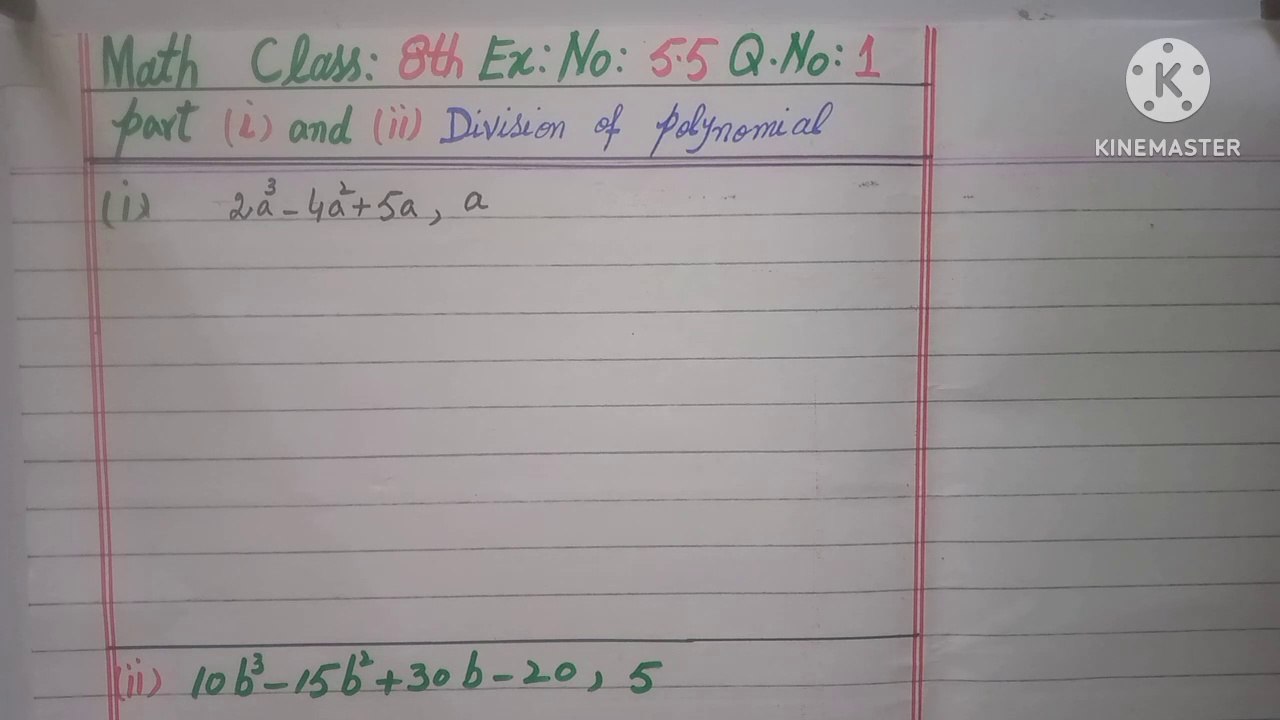 Math Class: 8th Ex: No: 5.5 Q.No: 1
part (i) and (ii) Division of polynomial
(i) 2a³ - 4a² + 5a, a
(ii) 10b³ - 15b² + 30b - 20, 5
K
KINEMASTER